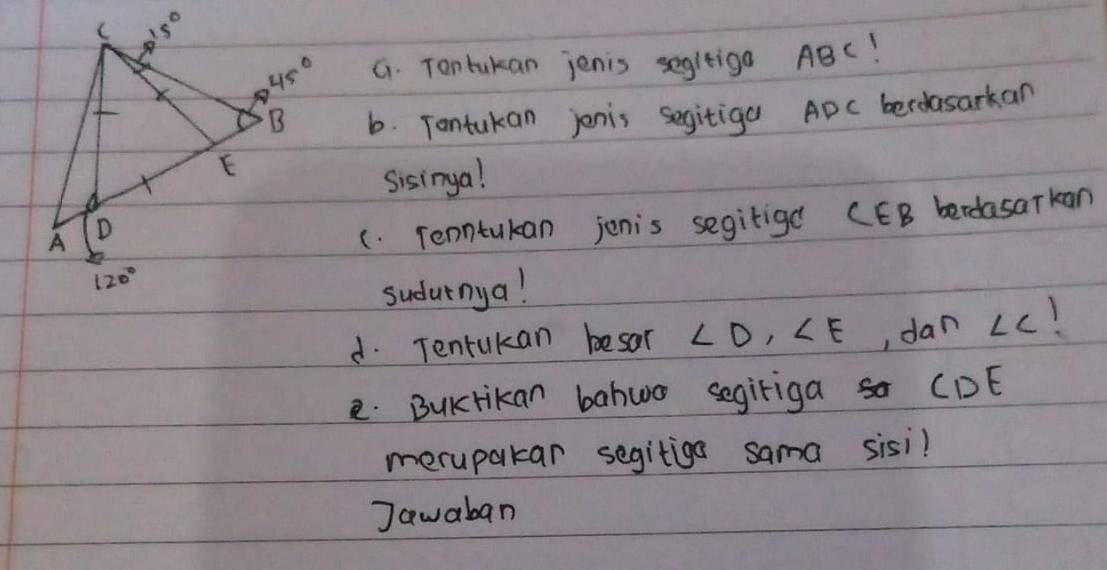 C 15°
45°
B
E
A D
120°
a. Tentukan jenis segitiga ABC!
b. Tentukan jenis segitiga ADC berdasarkan
sisinya!
c. Tenntukan jenis segitiga CEB berdasarkan
sudutnya!
d. Tentukan besar ∠D, ∠E, dan ∠C!
e. Buktikan bahwa segitiga CDE
merupakan segitiga sama sisi!
Jawaban